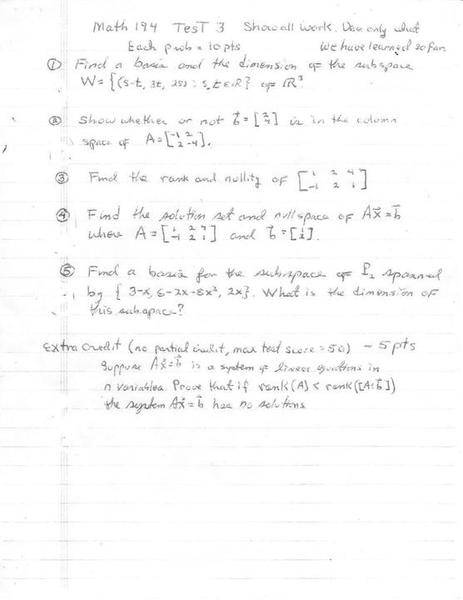 Math 194 Test 3 Show all work. Use only what
Each prob = 10pts we have learned so far.
① Find a basis and the dimension of the subspace
W = {(s-t, 3t, 2s) : s,t ∈ R} of R³
② Show whether or not b⃗ = is in the column
space of A = [-1 2; 2 -4].
③ Find the rank and nullity of [1 2 4; -1 2 1]
④ Find the solution set and nullspace of Ax⃗ = b⃗
where A = and b⃗ =
⑤ Find a basis for the subspace of P₂ spanned
by { 3-x, 6-2x-8x², 2x}. What is the dimension of
this subspace?
Extra credit (no partial credit, max test score = 50) - 5pts
Suppose Ax⃗ = b⃗ is a system of linear equations in
n variables. Prove that if rank(A) < rank([A¦b⃗])
the system Ax⃗ = b⃗ has no solutions